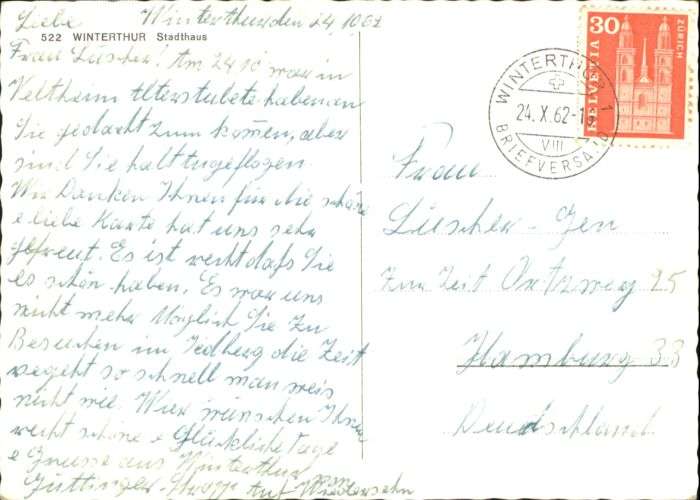 Liebe Winterthur den 24,1062
522 WINTERTHUR Stadthaus
Frau Lüscher! Am 24 10 war in
Veltheim Altersstubete haben an
Sie gedacht zum komen, aber
sind Sie halt ausgeflogen
Wir Danken Ihnen für die schöne
e liebe Karte hat uns sehr
gefreut. Es ist recht dass Sie
es schön haben. Es war uns
nicht meher Möglich Sie zu
Besuchen im die Zeit
vergeht so schnell man weis
nicht wie. Wier wünschen Ihnen
recht schöne e Glückliche Tage
e Grüsse aus Winterthur
Auf Wiedersehn
30
HELVETIA
ZÜRICH
WINTERTHUR 1
24. X. 62-
VIII
BRIEFVERSAND
Frau
Lüscher-
Zur Zeit 25
Hamburg 33
Deudschland